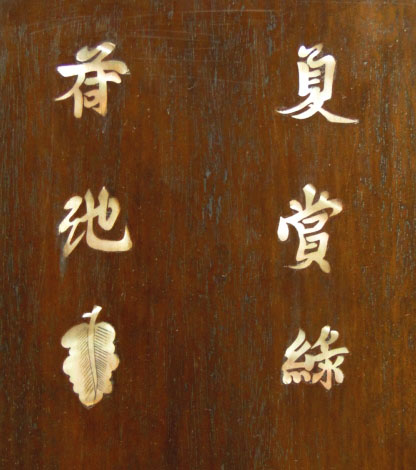 夏賞綠
荷池